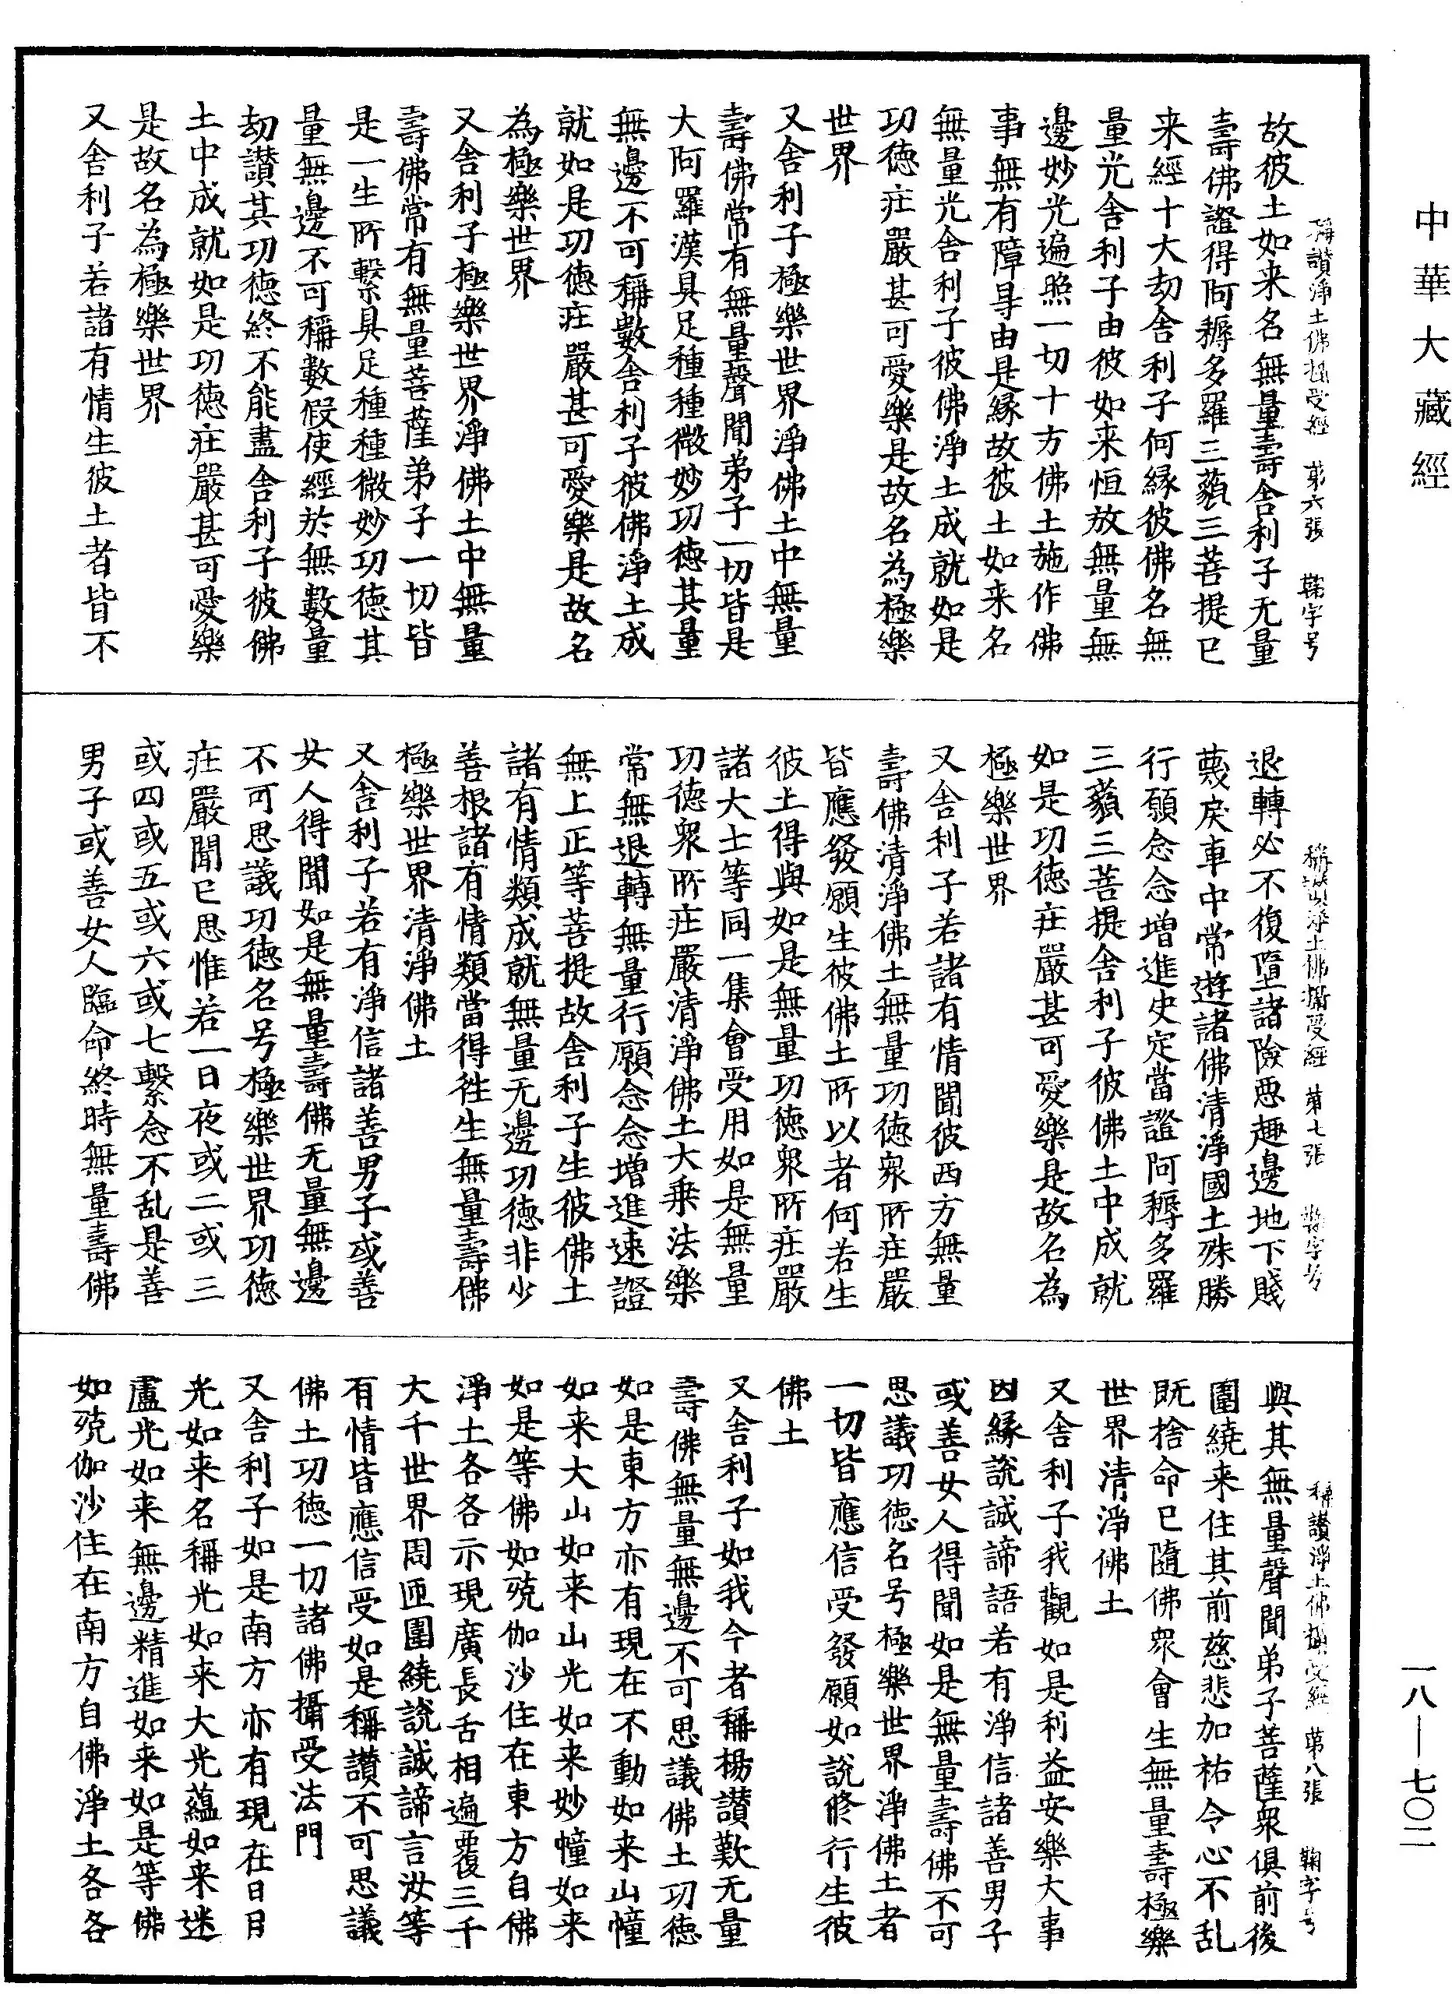 中華大藏經
稱讚淨土佛攝受經　第六張　鞠字号
故彼土如来名無量壽舍利子无量
壽佛證得阿耨多羅三藐三菩提已
来經十大劫舍利子何緣彼佛名無
量光舍利子由彼如来恒放無量無
邊妙光遍照一切十方佛土施作佛
事無有障㝵由是緣故彼土如来名
無量光舍利子彼佛淨土成就如是
功德莊嚴甚可愛樂是故名為極樂
世界
又舍利子極樂世界淨佛土中無量
壽佛常有無量聲聞弟子一切皆是
大阿羅漢具足種種微妙功德其量
無邊不可稱數舍利子彼佛淨土成
就如是功德莊嚴甚可愛樂是故名
為極樂世界
又舍利子極樂世界淨佛土中無量
壽佛常有無量菩薩弟子一切皆
是一生所繫具足種種微妙功德其
量無邊不可稱數假使經於無數量
劫讚其功德終不能盡舍利子彼佛
土中成就如是功德莊嚴甚可愛樂
是故名為極樂世界
又舍利子若諸有情生彼土者皆不
稱讚淨土佛攝受經　第七張　鞠字号
退轉必不復墮諸險惡趣邊地下賤
蔑戾車中常遊諸佛清淨國土殊勝
行願念念增進史定當證阿耨多羅
三藐三菩提舍利子彼佛土中成就
如是功德莊嚴甚可愛樂是故名為
極樂世界
又舍利子若諸有情聞彼西方無量
壽佛清淨佛土無量功德衆所莊嚴
皆應發願生彼佛土所以者何若生
彼土得與如是無量功德衆所莊嚴
諸大士等同一集會受用如是無量
功德衆所莊嚴清淨佛土大乘法樂
常無退轉無量行願念念增進速證
無上正等菩提故舍利子生彼佛土
諸有情類成就無量无邊功德非少
善根諸有情類當得往生無量壽佛
極樂世界清淨佛土
又舍利子若有淨信諸善男子或善
女人得聞如是無量壽佛无量無邊
不可思議功德名号極樂世界功德
莊嚴聞已思惟若一日夜或二或三
或四或五或六或七繫念不乱是善
男子或善女人臨命終時無量壽佛
稱讚淨土佛攝受經　第八張　鞠字号
與其無量聲聞弟子菩薩衆俱前後
圍繞来住其前慈悲加祐令心不乱
既捨命已隨佛衆會生無量壽極樂
世界清淨佛土
又舍利子我觀如是利益安樂大事
因緣說誠諦語若有淨信諸善男子
或善女人得聞如是無量壽佛不可
思議功德名号極樂世界淨佛土者
一切皆應信受發願如說修行生彼
佛土
又舍利子如我今者稱楊讃歎无量
壽佛無量無邊不可思議佛土功德
如是東方亦有現在不動如来山幢
如来大山如来山光如来妙幢如来
如是等佛如殑伽沙住在東方自佛
淨土各各示現廣長舌相遍覆三千
大千世界周匝圍繞說誠諦言汝等
有情皆應信受如是稱讚不可思議
佛土功德一切諸佛攝受法門
又舍利子如是南方亦有現在日月
光如来名稱光如来大光蘊如来迷
盧光如来無邊精進如来如是等佛
如殑伽沙住在南方自佛淨土各各
一八—七〇二